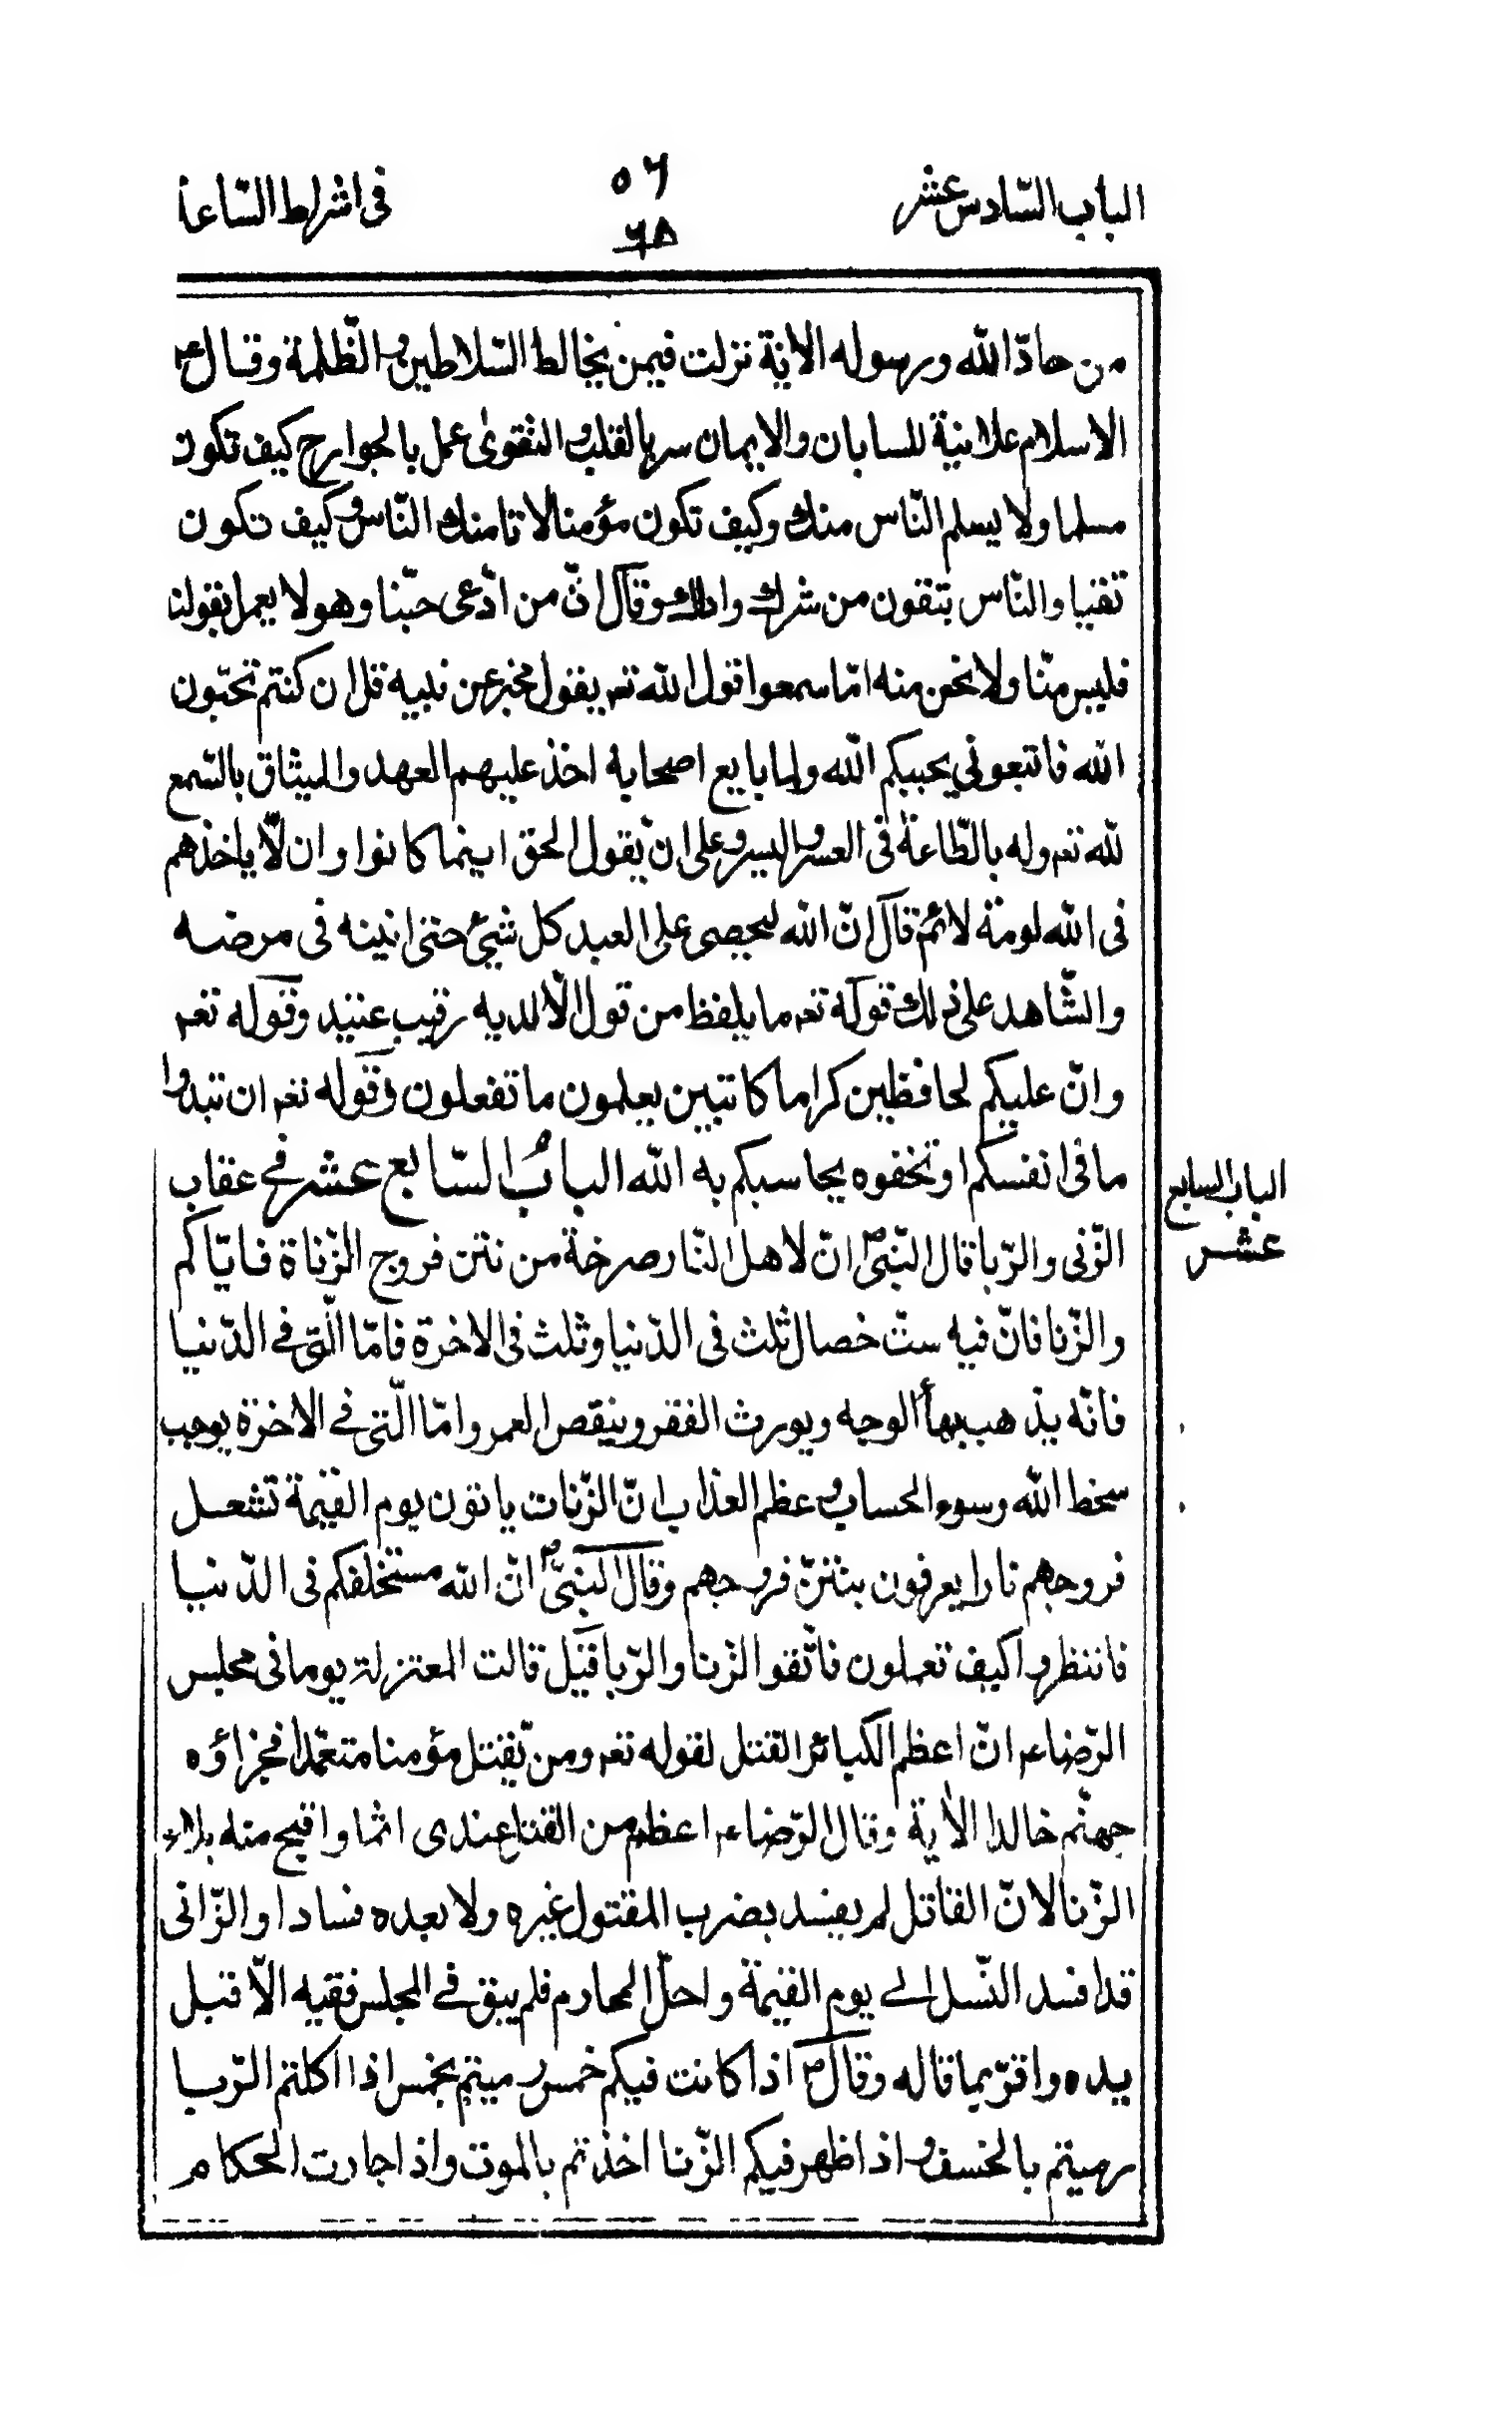 الباب السّادس عشر
٥٦
٦٨
فى اشراط السّاعة
من حادّ الله ورسوله الاية نزلت فيمن يخالط السّلاطين والظّلمة وقال ع
الاسلام علانية للسابان والايمان سر بالقلب والتقوىٰ عمل بالجوارح كيف تكون
مسلما ولا يسلم النّاس منك وكيف تكون مؤمنا لا تامنك النّاس وكيف تكون
تقيا والنّاس يتقون من شرك واذاك وقال انّ من ادّعى حبّنا وهو لا يعمل بقولنا
فليس منّا ولا نحن منه امّا سمعوا قول الله تعه يقول مخبر عن نبيه قل ان كنتم تحبّون
الله فاتبعونى يحببكم الله ولما بايع اصحابه اخذ عليهم العهد والميثاق بالسّمع
لله تعه وله بالطّاعة فى العسر واليسر وعلى ان يقول الحق اينما كانوا وان لّا ياخذهم
فى الله لومة لائم قال انّ الله ليحصى على العبد كل شيئ حتى انينه فى مرضه
والشّاهد على ذلك قوله تعه ما يلفظ من قول الّا لديه رقيب عتيد وقوله تعه
وانّ عليكم لحافظين كراما كاتبين يعلمون ما تفعلون وقوله تعه ان تبدوا
ما فى انفسكم او تخفوه يحاسبكم به الله الباب السّابع عشر فى عقاب
الباب السابع
عشر
الزّنى والرّبا قال النّبىّ ص انّ لاهل النّار صرخة من نتن فروج الزّناة فايّاكم
والزّنا فانّ فيه ستّ خصال ثلث فى الدّنيا وثلث فى الاخرة فامّا الّتى فى الدّنيا
فانّه يذهب بهاأ الوجه ويورث الفقر وينقص العمر وامّا الّتى فى الاخرة يوجب
سخط الله وسوء الحساب وعظم العذاب انّ الزّنات ياتون يوم القيمة تشعل
فروجهم نارا يعرفون بنتن فروجهم وقال النبىّ ص انّ الله مستخلفكم فى الدّنيا
فانظروا كيف تعملون فاتّقوا الزّنا والرّبا قيل قالت المعتزلة يوما فى مجلس
الرّضاء انّ اعظم الكبائر القتل لقوله تعه ومن يّقتل مؤمنا متعمّدا فجزاؤه
جهنّم خالدا الاية وقال الرّضاء اعظم من القتل عندى اثما واقبح منه بلاء
الزّنا لانّ القاتل لم يفسد بضرب المقتول غيره ولا بعده فسادا والزّانى
قد افسد النّسل الى يوم القيمة واحلّ المحارم فلم يبق فى المجلس فقيه الّا قبل
يده واقرّ بما قاله وقال ص اذا كانت فيكم خمس رميتم بخمس اذا اكلتم الرّبا
رميتم بالخسف واذا ظهر فيكم الزّنا اخذتم بالموت واذا جارت الحكام